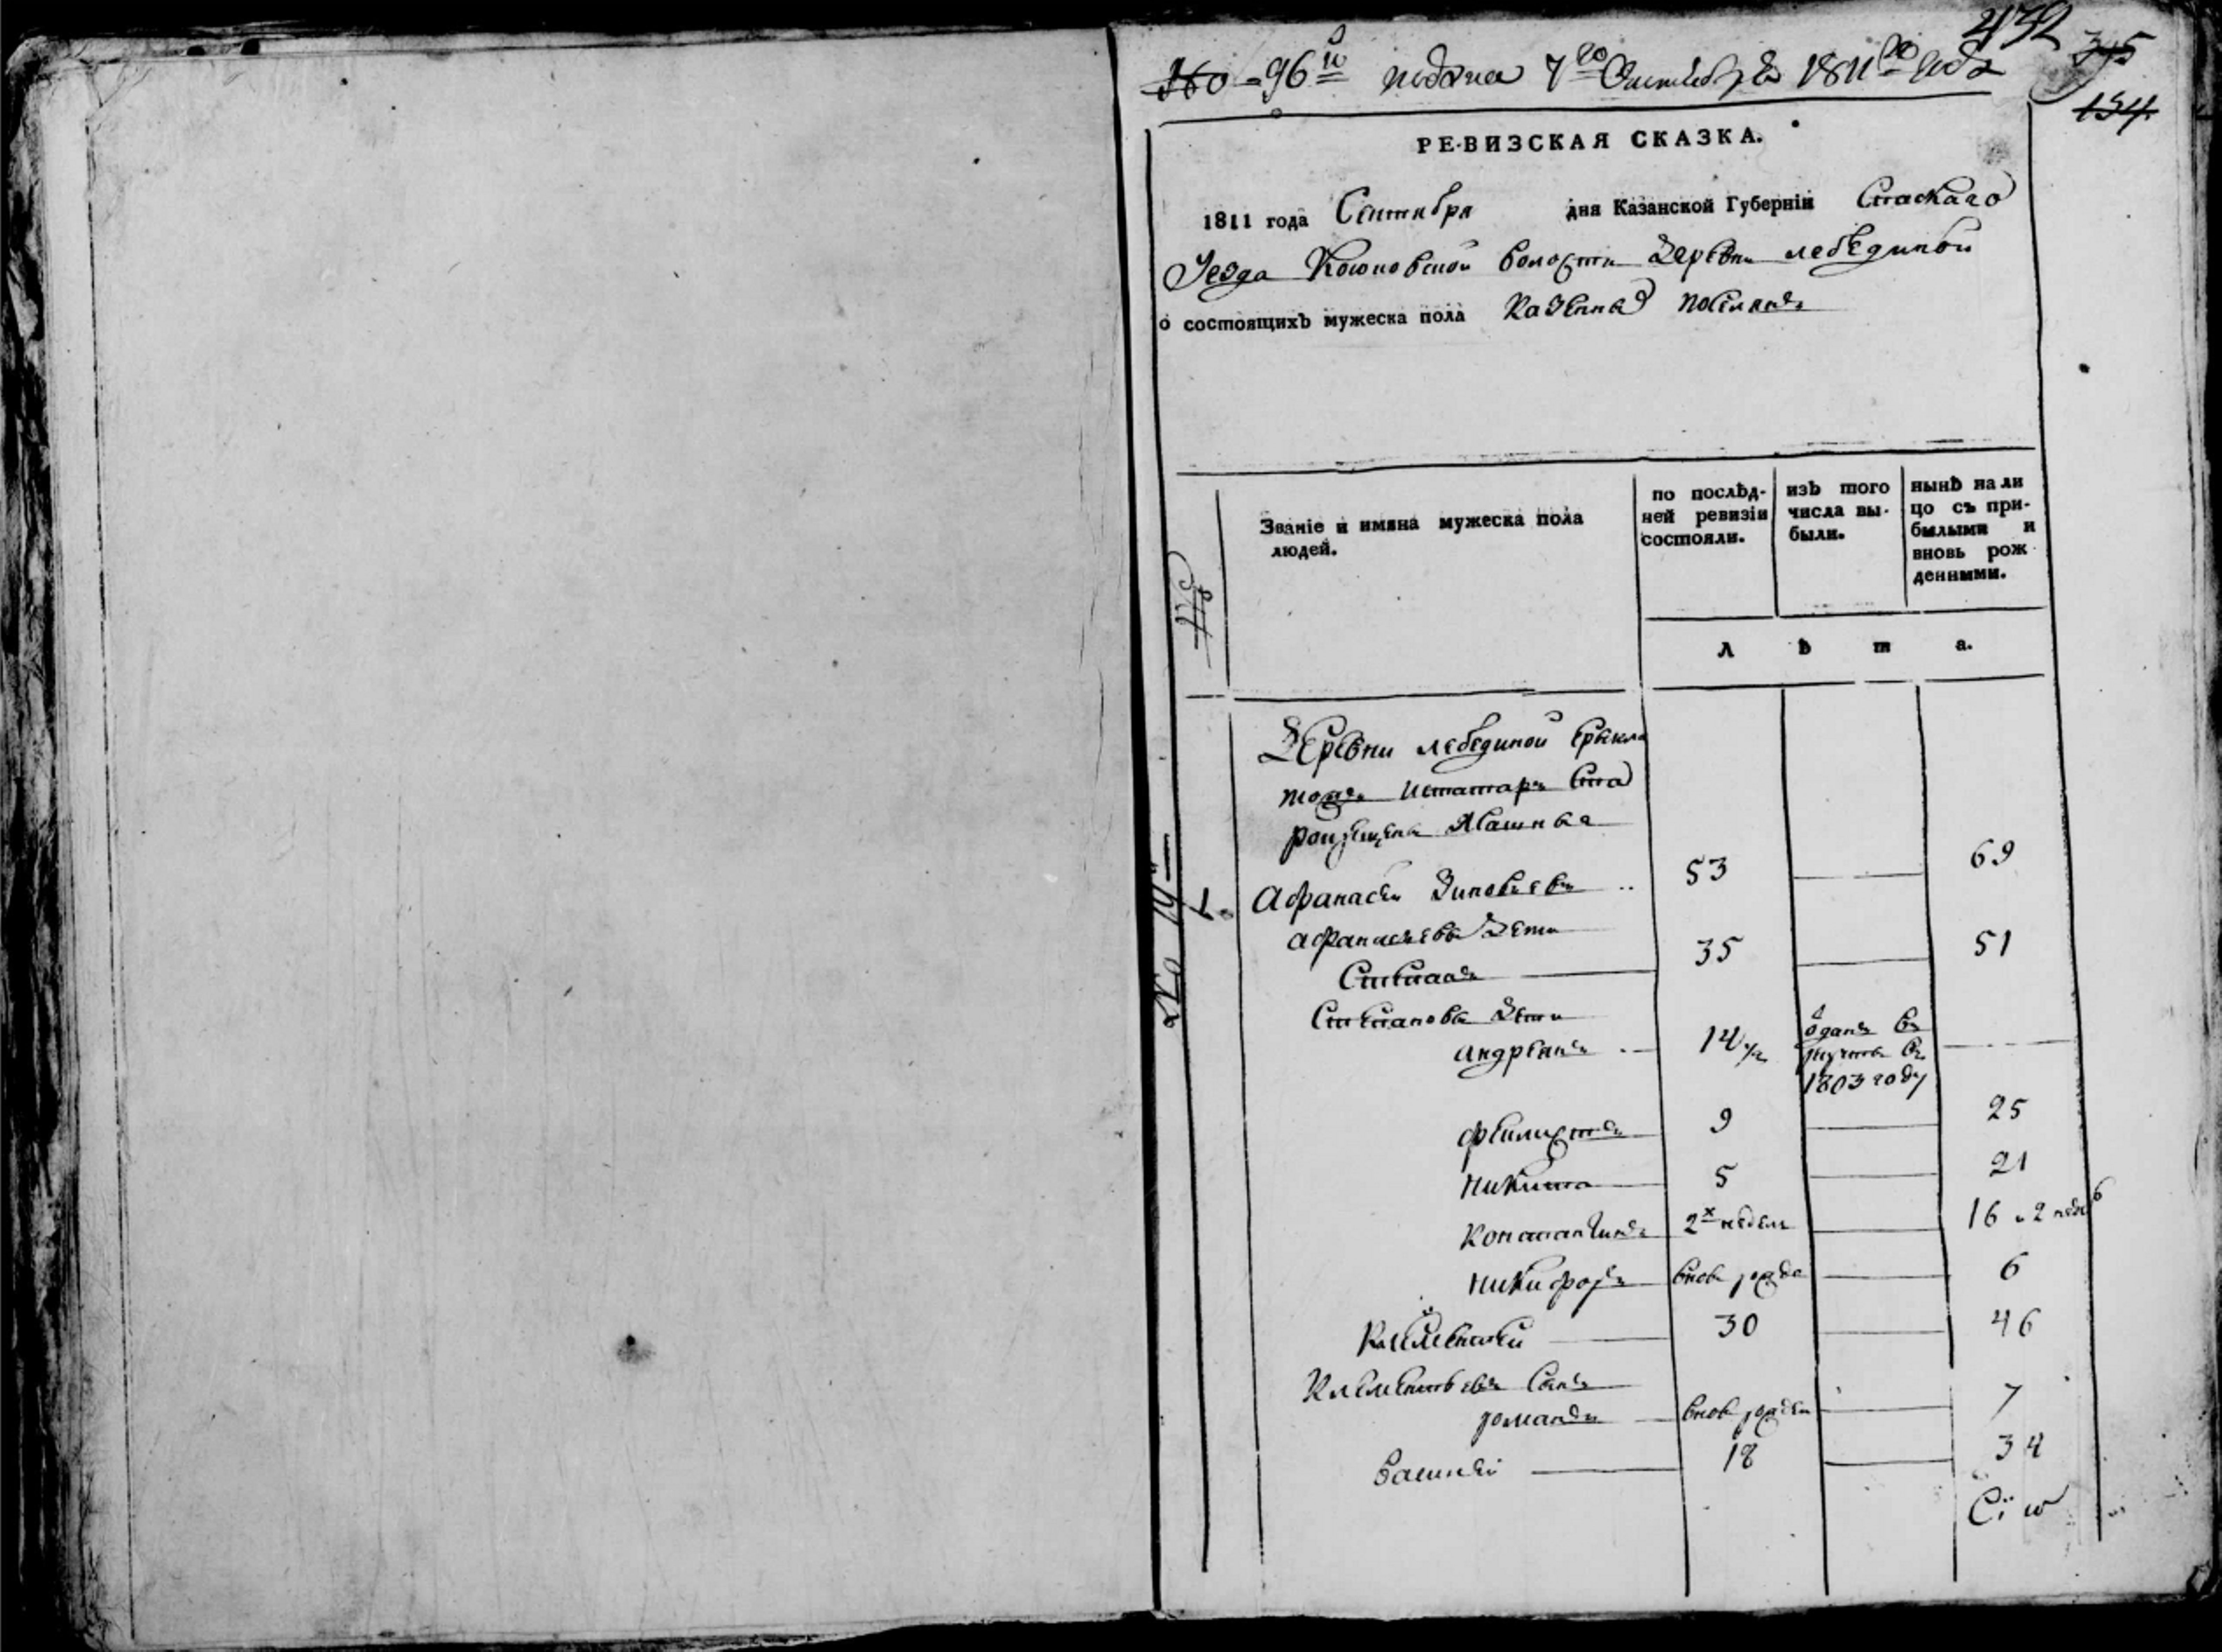 432
345
154.
160 - 96й подана 7го Октября 1811го года
РЕВИЗСКАЯ СКАЗКА.
1811 года Сентября дня Казанской Губерніи Спаскаго
Уезда Волости Деревни лебединой
о состоящихъ мужеска пола Казенныхъ поселянъ
Званіе и имяна мужеска пола людей.
по послѣд-
ней ревизіи
состояли.
изъ того
числа вы-
были.
нынѣ на ли
цо съ при-
былыми и
вновь рож
денными.
Л ѣ т а.
Деревни лебединой
1. Афанасей Зиновьевъ 53 69
афанасьевы дети
Степанъ 35 51
Степановы дети
андреянъ 14 1/2 отданъ въ рекруты въ 1803 году
9 25
никита 5 21
Константинъ 2х недель 16 и 2 неде
никифоръ вновь рожде 6
Клементей 30 46
Клементьевъ сынъ
романъ вновь рожден 7
василей 18 34